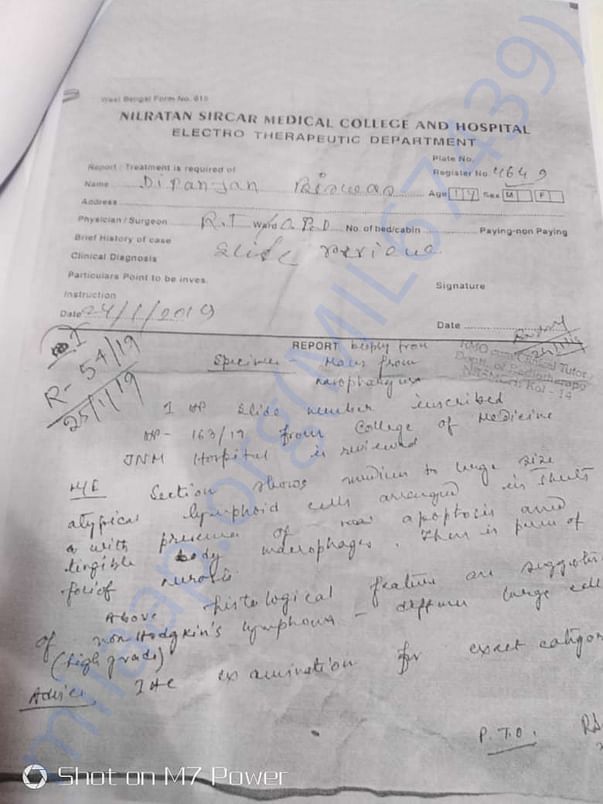 West Bengal Form No. 615
NILRATAN SIRCAR MEDICAL COLLEGE AND HOSPITAL
ELECTRO THERAPEUTIC DEPARTMENT
Plate No.
Report / Treatment is required of
Register No. 4649
Name Dipanjan Biswas Age 14 Sex M F
Address
Physician / Surgeon R.T Ward O.P.D No. of bed/cabin Paying-non Paying
Brief History of case
Clinical Diagnosis Slide review
Particulars Point to be inves.
Signature
Instruction
Date 24/1/2019
Date
REPORT
R- 54/19
25/1/19
RMO cum Clinical Tutor
Deptt. of Radiotherapy
Kol - 14
biopsy from
Specimen - Mass from
nasopharynx
1 HP Slide number inscribed
HP- 163/19 from College of Medicine
JNM Hospital is reviewed
M/E Section shows medium to large size
atypical lymphoid cells arranged in sheets
with presence of apoptosis and
tingible body macrophages. There is
of necrosis
Above histological feature are
of non Hodgkin's lymphoma - diffuse large cell
(high grade)
Advice IHC examination for exact
P.T.O.
milaap.org(MIL67439)
Shot on M7 Power